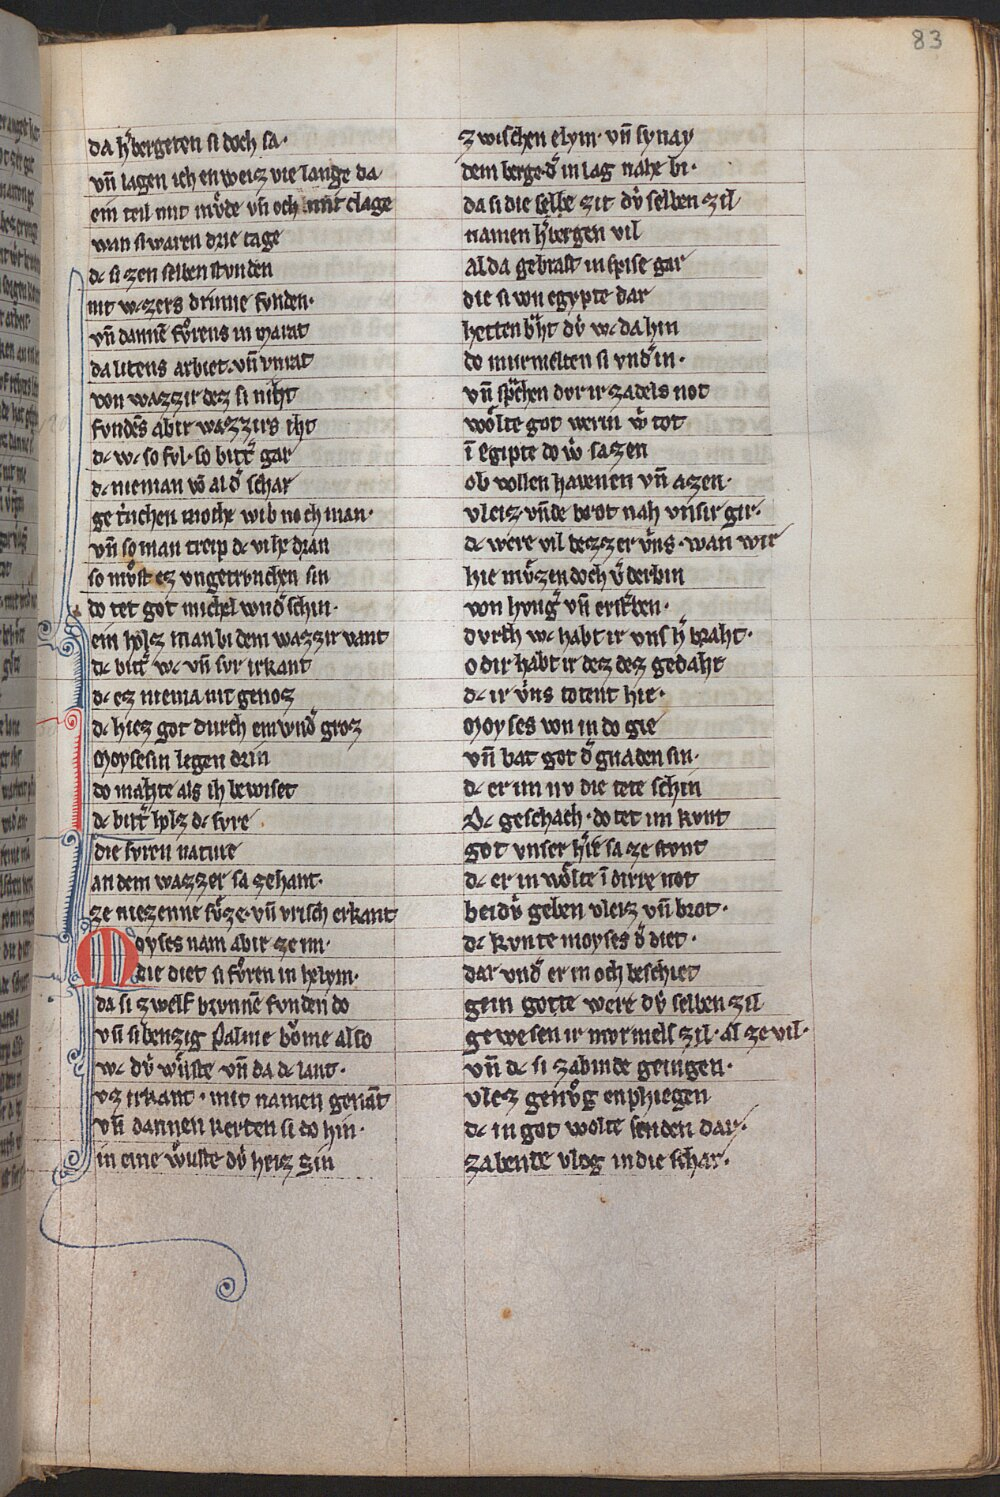 83
da h̾bergeten si doch sa·
vn̄ lagen ich enweiz vie lange da
ein teil mit mv̊de vn̄ och mit clage
wan si waren drie tage
dc si zen selben stvnden
nit wazzers drinne fvnden·
vn̄ dannē fv̊rens in marat
da litens arbiet· vn̄ vnrat
von wazzir dez si niht
fvndēs abir wazzirs iht
dc wc so fvl· so bitt̾ gar
dc nieman vō al d̾ schar
getrīchen mohte wib noch man·
vn̄ so man treip dc vihe dran
so mv̊st ez vngetrvnchen sin
do tet got michel wnd̾ schin·
ein holz man bi dem wazzir vant
dc bitt̾ wc vn̄ svr irkant
dc ez niema nit genoz
dc hiez got durch ein wnd̾ groz
Moysesin legen drin
do mahte als ih bewiset
dc bitt̾ holz dc svre
die svren nature
an dem wazzer sa zehant·
ze niezenne sv̊ze· vn̄ vrisch erkant
Moyses nam abir ze im·
die diet si fv̊ren in helym·
da si zwelf brvnnē fvnden do
vn̄ sibenzig Palme bōme also
wc dv̓ wv̊ste vn̄ da dc lant·
vz irkant· mit namen genāt
vn̄ dannen kerten si do hin·
in eine wv̊ste dv̓ heiz Sin
zwischen elym· vn̄ synay
dem berge· d̾ in lag nahe bi·
da si die selbe zit dv̓ selben zil
namen h̾bergen vil
Al da gebrast in spise gar
die si von egypte dar
hetten b̾ht dv̓ wc da hin
do murmelten si vnd̾ in·
vn̄ sp̾chen dor ir zadels not
wölte got werin w̾ tot
ī Egipte do w̾ sazen
ob vollen havenen vn̄ azen·
vleiz· vn̄de brot nah vnsir gir·
dc were vil bezzer v̓ns· wan wir
hie mv̊zin doch v̾derbin
von hvng̾ vn̄ erst̾ben·
dvrch wc habt ir vns h̾ braht·
odir habt ir dez dez gedaht
dc ir v̓ns totent hie·
Moyses von in do gie
vn̄ bat got d̾ gnaden sin·
dc er im nv die tete schin
Dc geschach· do tet im kvnt
got vnser h̾re sa ze stvnt
dc er in wölte ī dirre not
beidv̓ geben vleiz vn̄ brot·
dc kvnte moyses d̾ diet·
dar vnd̾ er in och beschiet
gein gotte were dv̓ selben zil
gewesen ir mormels zil· al ze vil·
vn̄ dc si zabinde geingen·
vleiz genv̊g enphiegen
dc in got wolte senden dar·
zabende vlog in die schar·